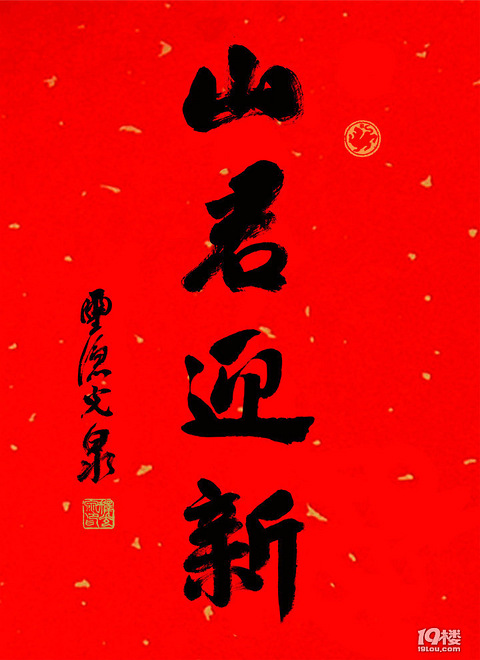 山君迎新
灵隐光泉
19楼
19lou.com